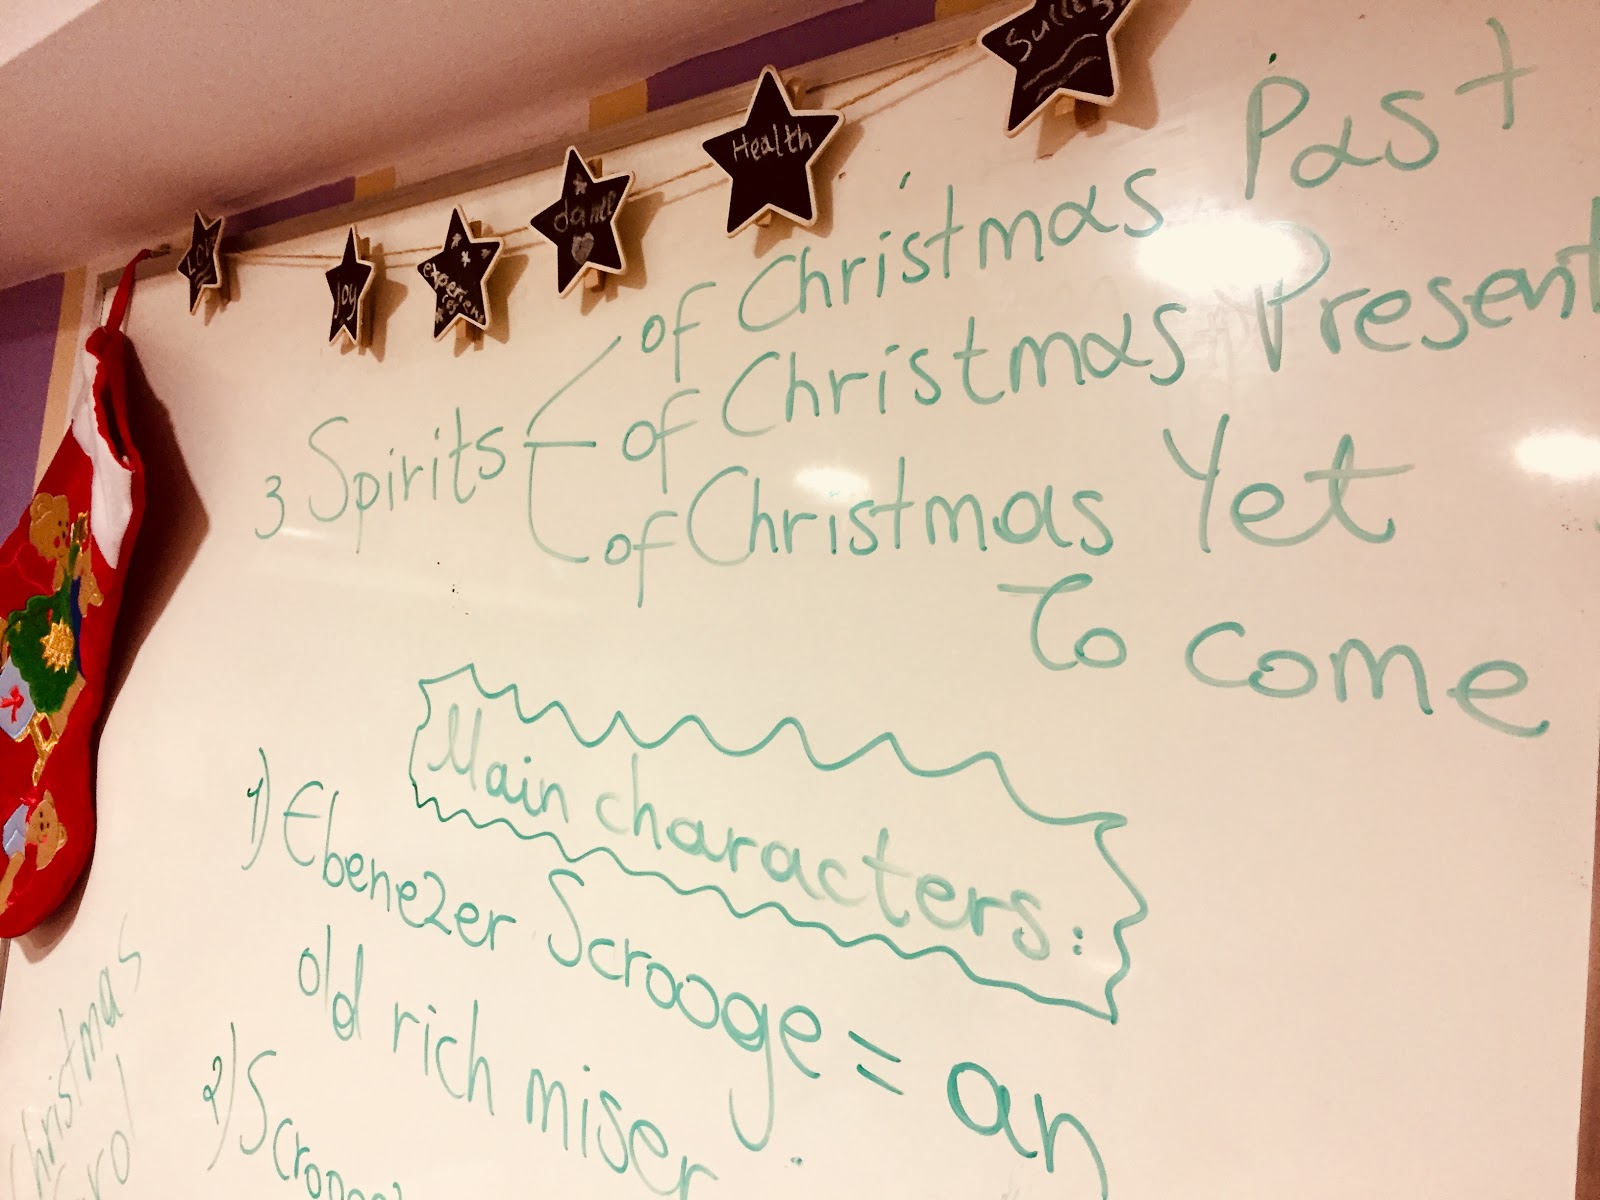 Love
Joy
experiences
dance
Health
Success
of Christmas Past
3 Spirits of Christmas Present
of Christmas Yet
To come
Main characters:
1) Ebenezer Scrooge = an
old rich miser
2) Scrooge's
Christmas
Carol